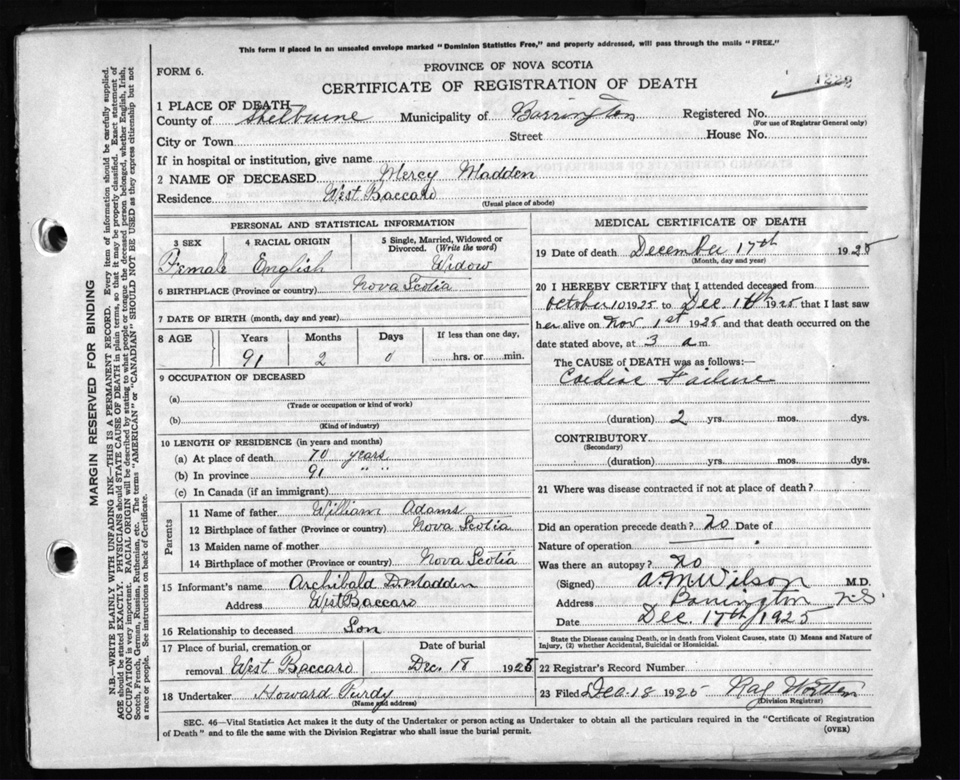 This form if placed in an unsealed envelope marked "Dominion Statistics Free," and property addressed, will pass through the mails "FREE."
FORM 6.
PROVINCE OF NOVA SCOTIA
CERTIFICATE OF REGISTRATION OF DEATH
1 PLACE OF DEATH
County of Shelburne Municipality of Barrington Registered No.
(For use of Registrar General only)
City or Town Street House No.
If in hospital or institution, give name
2 NAME OF DECEASED Mercy Madden
Residence West Baccaro
(Usual place of abode)
PERSONAL AND STATISTICAL INFORMATION
3 SEX 4 RACIAL ORIGIN 5 Single, Married, Widowed or Divorced. (Write the word)
Female English Widow
6 BIRTHPLACE (Province or country) Nova Scotia
7 DATE OF BIRTH (month, day and year)
8 AGE Years Months Days If less than one day,
91 2 0 hrs. or min.
9 OCCUPATION OF DECEASED
(a)
(Trade or occupation or kind of work)
(b)
(Kind of industry)
10 LENGTH OF RESIDENCE (in years and months)
(a) At place of death 70 years
(b) In province 91 " "
(c) In Canada (if an immigrant)
Parents
11 Name of father William Adams
12 Birthplace of father (Province or country) Nova Scotia
13 Maiden name of mother
14 Birthplace of mother (Province or country) Nova Scotia
15 Informant's name Archibald D. Madden
Address West Baccaro
16 Relationship to deceased Son
17 Place of burial, cremation or Date of burial
removal West Baccaro Dec. 18 1925
18 Undertaker Howard Purdy
(Name and address)
MEDICAL CERTIFICATE OF DEATH
19 Date of death December 17th 1925
(Month, day and year)
20 I HEREBY CERTIFY that I attended deceased from
October 10 1925 to Dec. 1925 that I last saw
her alive on Nov 1st 1925 and that death occurred on the
date stated above, at 3 a m.
The CAUSE of DEATH was as follows:—
Cardiac Failure
(duration) 2 yrs. mos. dys.
CONTRIBUTORY
(Secondary)
(duration) yrs. mos. dys.
21 Where was disease contracted if not at place of death?
Did an operation precede death? No Date of
Nature of operation
Was there an autopsy? No
(Signed) A. M. Wilson M.D.
Address Barrington N.S.
Date Dec. 17th 1925
State the Disease causing Death, or in death from Violent Causes, state (1) Means and Nature of
Injury, (2) whether Accidental, Suicidal or Homicidal.
22 Registrar's Record Number
23 Filed Dec. 18 1925 Ray
(Division Registrar)
SEC. 46—Vital Statistics Act makes it the duty of the Undertaker or person acting as Undertaker to obtain all the particulars required in the "Certificate of Registration
of Death" and to file the same with the Division Registrar who shall issue the burial permit.
(OVER)
MARGIN RESERVED FOR BINDING
N.B.—WRITE PLAINLY WITH UNFADING INK—THIS IS A PERMANENT RECORD. Every item of information should be carefully supplied.
AGE should be stated EXACTLY. PHYSICIANS should STATE CAUSE OF DEATH in plain terms, so that it may be properly classified. Exact statement of
OCCUPATION is very important. RACIAL ORIGIN will be described by stating to what people or tongue the deceased person belonged, whether English, Irish,
Scotch, French, German, Russian, Ruthenian, etc. The terms "AMERICAN" or "CANADIAN" SHOULD NOT BE USED as they express citizenship but not
a race or people. See instructions on back of Certificate.